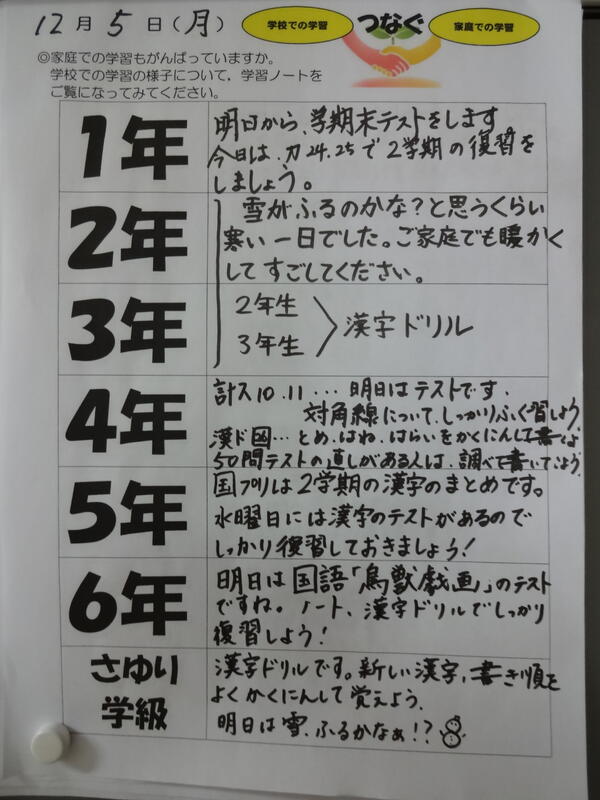 12月5日(月)
学校での学習 つなぐ 家庭での学習
◎家庭での学習もがんばっていますか。
学校での学習の様子について，学習ノートを
ご覧になってみてください。
1年
明日から、学期末テストをします
今日は、カ24.25で2学期の復習を
しましょう。
2年
雪がふるのかな？と思うくらい
寒い一日でした。ご家庭でも暖かく
してすごしてください。
3年
2年生
3年生
漢字ドリル
4年
計ス10.11…明日はテストです．
対角線について、しっかりふく習しよう
漢ド国…とめ、はね、はらいをかくにんして書こう
50問テストの直しがある人は、調べて書いてこよう
5年
国プリは2学期の漢字のまとめです。
水曜日には漢字のテストがあるので
しっかり復習しておきましょう！
6年
明日は国語「鳥獣戯画」のテスト
ですね。ノート、漢字ドリルでしっかり
復習しよう！
さゆり
学級
漢字ドリルです。新しい漢字，書き順を
よくかくにんして覚えよう．
明日は雪、ふるかなぁ！？